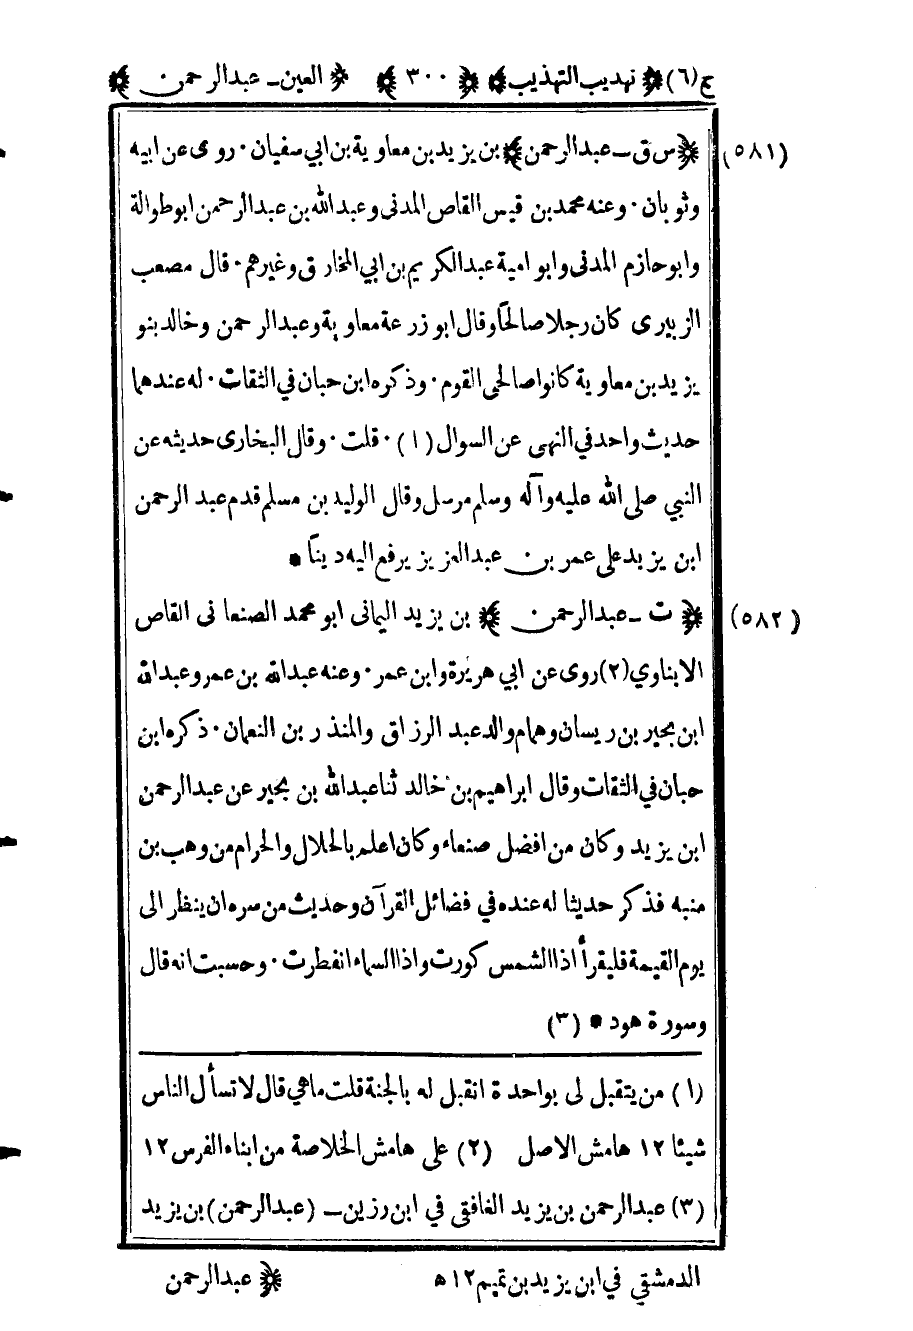 ج (٦) ﴿ تهذيب التهذيب ﴾ ﴿ ٣٠٠ ﴾ ﴿ العين ـ عبدالرحمن ﴾
(٥٨١) ﴿ س ق ـ عبدالرحمن ﴾ بن يزيد بن معاوية بن ابي سفيان ٠ روى عن ابيه
وثوبان ٠ وعنه محمد بن قيس القاص المدنى وعبد الله بن عبد الرحمن ابو طوالة
وابوحازم المدنى وابو امية عبدالكريم بن ابي المخارق وغيرهم ٠ قال مصعب
الزبيرى كان رجلا صالحاً وقال ابو زرعة معاوية وعبدالرحمن وخالد بنو
يزيد بن معاوية كانوا صالحى القوم ٠ وذكره ابن حبان في الثقات ٠ له عندهما
حديث واحد في النهى عن السوال (١) ٠ قلت ٠ وقال البخارى حديثه عن
النبي صلى الله عليه وآله وسلم مرسل وقال الوليد بن مسلم قدم عبد الرحمن
ابن يزيد على عمر بن عبدالعزيز يرفع اليه ديناً *
(٥٨٢) ﴿ ت ـ عبدالرحمن ﴾ بن يزيد اليمانى ابو محمد الصنعانى القاص
الابناوي (٢) روى عن ابي هريرة وابن عمر ٠ وعنه عبدالله بن عمر وعبدالله
ابن بحير بن ريسان وهمام والد عبد الرزاق والمنذر بن النعمان ٠ ذكره ابن
حبان في الثقات وقال ابراهيم بن خالد ثنا عبدالله بن بحير عن عبدالرحمن
ابن يزيد وكان من افضل صنعاء وكان اعلم بالحلال والحرام من وهب بن
منبه فذكر حديثا له عنده في فضائل القرآن وحديث من سره ان ينظر الى
يوم القيمة فليقرأ اذا الشمس كورت واذا السماء انفطرت ٠ وحسبت انه قال
وسورة هود * (٣)
(١) من يتقبل لى بواحدة اتقبل له بالجنة قلت ماهي قال لا تسأل الناس
شيئا ١٢ هامش الاصل (٢) على هامش الخلاصة من ابناء الفرس ١٢
(٣) عبدالرحمن بن يزيد الغافقى في ابن رزين ـ (عبدالرحمن) بن يزيد
الدمشقي في ابن يزيد بن تميم ١٢ ه
﴿ عبدالرحمن